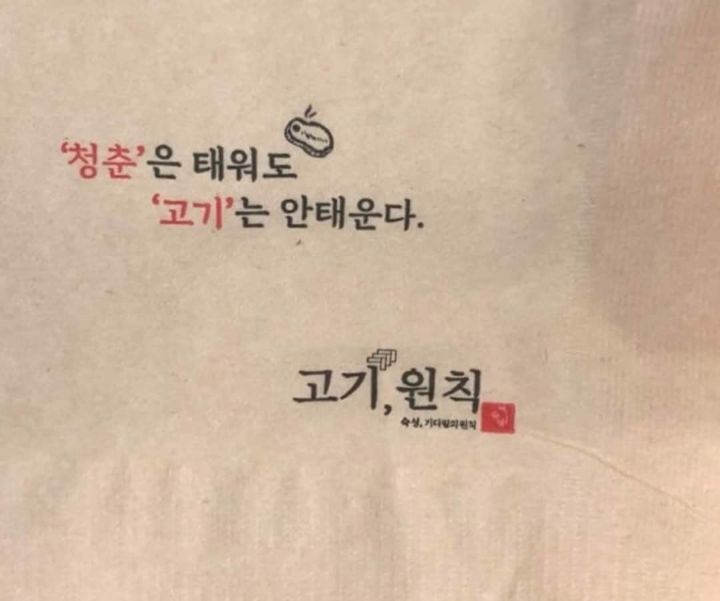 ‘청춘’은 태워도
‘고기’는 안태운다.
고기, 원칙
숙성, 기다림의 원칙